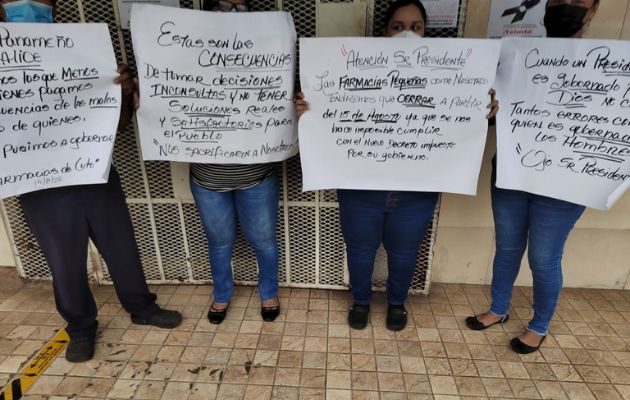 Panameño
ALICE
nos los que menos
ienes pagamos
cuencias de las malas
s de quienes.
Pusimos a gobernar
armacias de Luto"
Estas son las
Consecuencias
De tomar decisiones
Inconsultas y no tener
Soluciones Reales
y Satisfactorios para
el Pueblo
"Nos sacrificaron a Nosotros
"Atención Sr Presidente"
Las Farmacias Pequeñas como Nosotros
Tendremos que Cerrar a partir
del 15 de Agosto ya que se nos
hace imposible cumplir
con el Nuevo Decreto impuesto
por su gobierno.
Cuando un Presid
es gobernado p
Dios no c
Tantos errores com
quien es gobernad
los Hombres
"Ojo Sr. Presidente